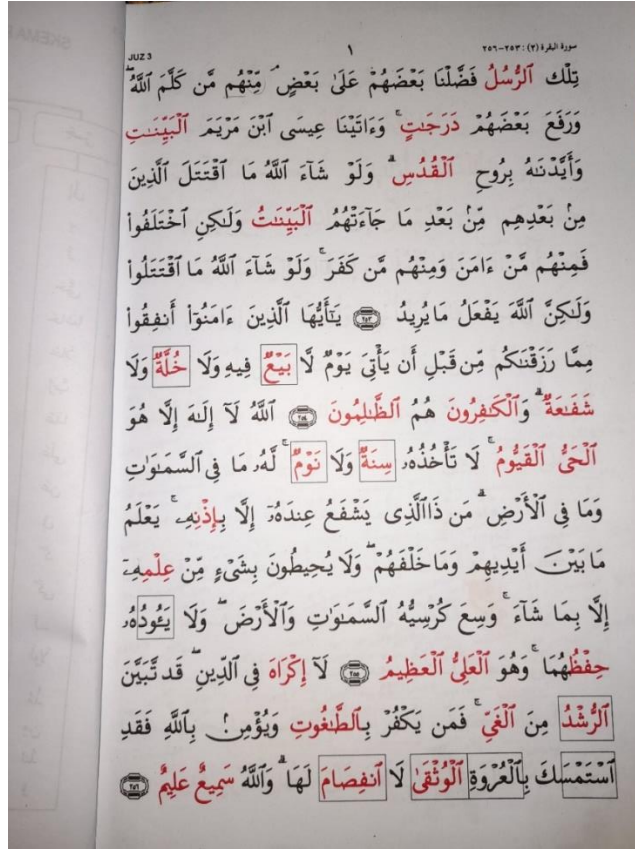 JUZ 3
١
سورة البقرة (٢) : ٢٥٣-٢٥٦
تِلْكَ ٱلرُّسُلُ فَضَّلْنَا بَعْضَهُمْ عَلَىٰ بَعْضٍ ۘ مِّنْهُم مَّن كَلَّمَ ٱللَّهُ ۖ
وَرَفَعَ بَعْضَهُمْ دَرَجَـٰتٍ ۚ وَءَاتَيْنَا عِيسَى ٱبْنَ مَرْيَمَ ٱلْبَيِّنَـٰتِ
وَأَيَّدْنَـٰهُ بِرُوحِ ٱلْقُدُسِ ۗ وَلَوْ شَآءَ ٱللَّهُ مَا ٱقْتَتَلَ ٱلَّذِينَ
مِنۢ بَعْدِهِم مِّنۢ بَعْدِ مَا جَآءَتْهُمُ ٱلْبَيِّنَـٰتُ وَلَـٰكِنِ ٱخْتَلَفُوا۟
فَمِنْهُم مَّنْ ءَامَنَ وَمِنْهُم مَّن كَفَرَ ۚ وَلَوْ شَآءَ ٱللَّهُ مَا ٱقْتَتَلُوا۟
وَلَـٰكِنَّ ٱللَّهَ يَفْعَلُ مَا يُرِيدُ ٢٥٣ يَـٰٓأَيُّهَا ٱلَّذِينَ ءَامَنُوٓا۟ أَنفِقُوا۟
مِمَّا رَزَقْنَـٰكُم مِّن قَبْلِ أَن يَأْتِىَ يَوْمٌ لَّا بَيْعٌ فِيهِ وَلَا خُلَّةٌ وَلَا
شَفَـٰعَةٌ ۗ وَٱلْكَـٰفِرُونَ هُمُ ٱلظَّـٰلِمُونَ ٢٥٤ ٱللَّهُ لَآ إِلَـٰهَ إِلَّا هُوَ
ٱلْحَىُّ ٱلْقَيُّومُ ۚ لَا تَأْخُذُهُۥ سِنَةٌ وَلَا نَوْمٌ ۚ لَّهُۥ مَا فِى ٱلسَّمَـٰوَٰتِ
وَمَا فِى ٱلْأَرْضِ ۗ مَن ذَا ٱلَّذِى يَشْفَعُ عِندَهُۥٓ إِلَّا بِإِذْنِهِۦ ۚ يَعْلَمُ
مَا بَيْنَ أَيْدِيهِمْ وَمَا خَلْفَهُمْ ۖ وَلَا يُحِيطُونَ بِشَىْءٍ مِّنْ عِلْمِهِۦٓ
إِلَّا بِمَا شَآءَ ۚ وَسِعَ كُرْسِيُّهُ ٱلسَّمَـٰوَٰتِ وَٱلْأَرْضَ ۖ وَلَا يَـُٔودُهُۥ
حِفْظُهُمَا ۚ وَهُوَ ٱلْعَلِىُّ ٱلْعَظِيمُ ٢٥٥ لَآ إِكْرَاهَ فِى ٱلدِّينِ ۖ قَد تَّبَيَّنَ
ٱلرُّشْدُ مِنَ ٱلْغَىِّ ۚ فَمَن يَكْفُرْ بِٱلطَّـٰغُوتِ وَيُؤْمِنۢ بِٱللَّهِ فَقَدِ
ٱسْتَمْسَكَ بِٱلْعُرْوَةِ ٱلْوُثْقَىٰ لَا ٱنفِصَامَ لَهَا ۗ وَٱللَّهُ سَمِيعٌ عَلِيمٌ ٢٥٦